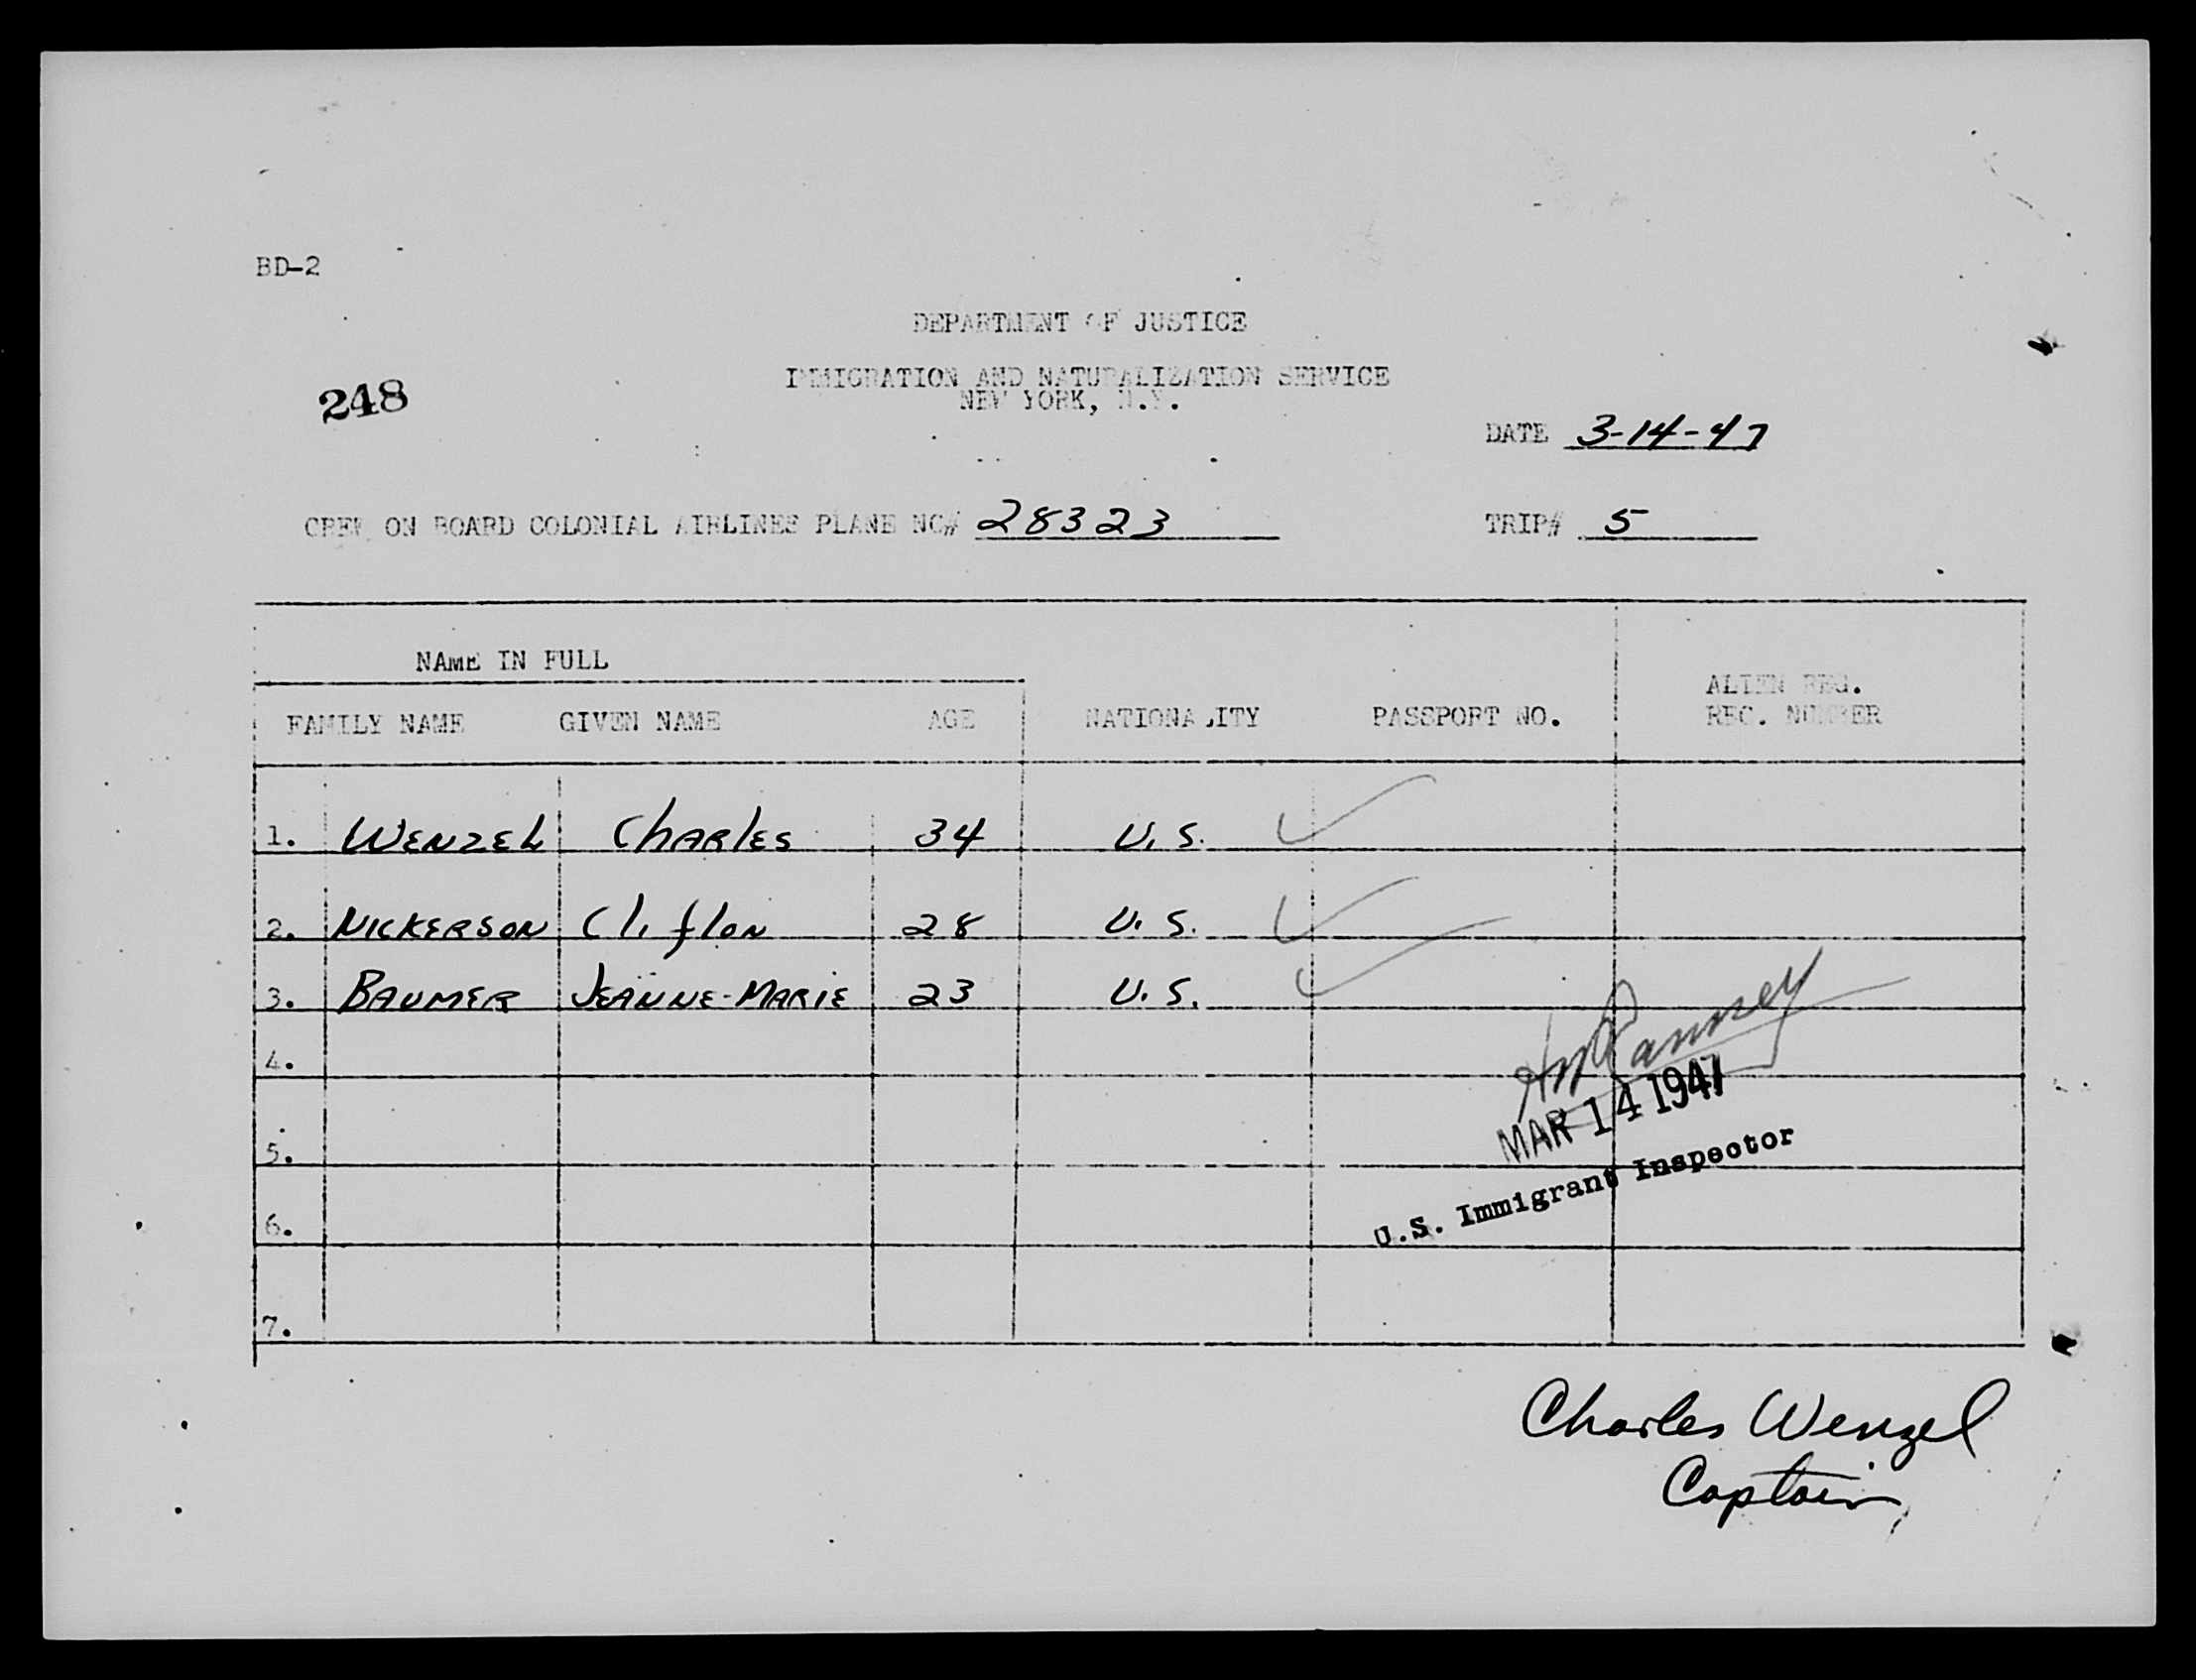 BD-2
DEPARTMENT OF JUSTICE
248
IMMIGRATION AND NATURALIZATION SERVICE
NEW YORK, N.Y.
DATE 3-14-47
CREW ON BOARD COLONIAL AIRLINES PLANE NO# 28323 TRIP# 5
NAME IN FULL
FAMILY NAME GIVEN NAME AGE NATIONALITY PASSPORT NO. ALIEN REG. REC. NUMBER
1. WENZEL Charles 34 U.S.
2. NICKERSON Clifton 28 U.S.
3. BAUMER JEANNE-MARIE 23 U.S.
4.
MAR 14 1947
5.
U.S. Immigrant Inspector
6.
7.
Charles Wenzel
Captain